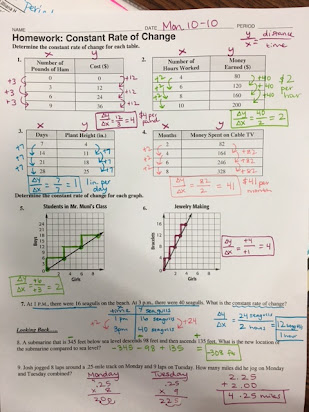 Period
NAME DATE Mon 10-10 PERIOD
Homework: Constant Rate of Change
y/x = distance/time
Determine the constant rate of change for each table.
x y x y
1. 2.
Number of Pounds of Ham Cost ($)
0 0
3 12
6 24
9 36
+3 +12
+3
+3 +12
Δy/Δx = 12/3 = 4 $4 per pound
Number of Hours Worked Money Earned ($)
4 80
6 120
8 160
10 200
+2 +40
+2 +40
+2 +40
$2 per hour
Δy/Δx = 40/2 = 2
x y x y
3. 4.
Days Plant Height (in.)
7 4
14 11
21 18
28 25
+7 +7
+7 +7
+7 +7
Δy/Δx = 7/7 = 1 1 in per day
Months Money Spent on Cable TV
2 82
4 164
6 246
8 328
+2 +82
+2 +82
+2 +82
Δy/Δx = 82/2 = 41 $41 per month
Determine the constant rate of change for each graph.
5. Students in Mr. Muni's Class 6. Jewelry Making
Boys
Girls
Δy/Δx = +6/+3 = 2
Bracelets
Girls
Δy/Δx = +4/+1 = 4
7. At 1 P.M., there were 16 seagulls on the beach. At 3 P.M., there were 40 seagulls. What is the constant rate of change?
time seagulls
1 pm 16 seagulls
3pm 40 seagulls
+2 +24
Δy/Δx = 24 seagulls / 2 hours = 12 seagulls / 1 hour
Looking Back....
8. A submarine that is 345 feet below sea level descends 98 feet and then ascends 135 feet. What is the new location of
the submarine compared to sea level? -345 - 98 + 135 = -308 ft
9. Josh jogged 8 laps around a .25-mile track on Monday and 9 laps on Tuesday. How many miles did he jog on Monday
and Tuesday combined?
Monday Tuesday 2.25
.25 .25 + 2.00
x 8 x 9 4.25 miles
2.00 2.25